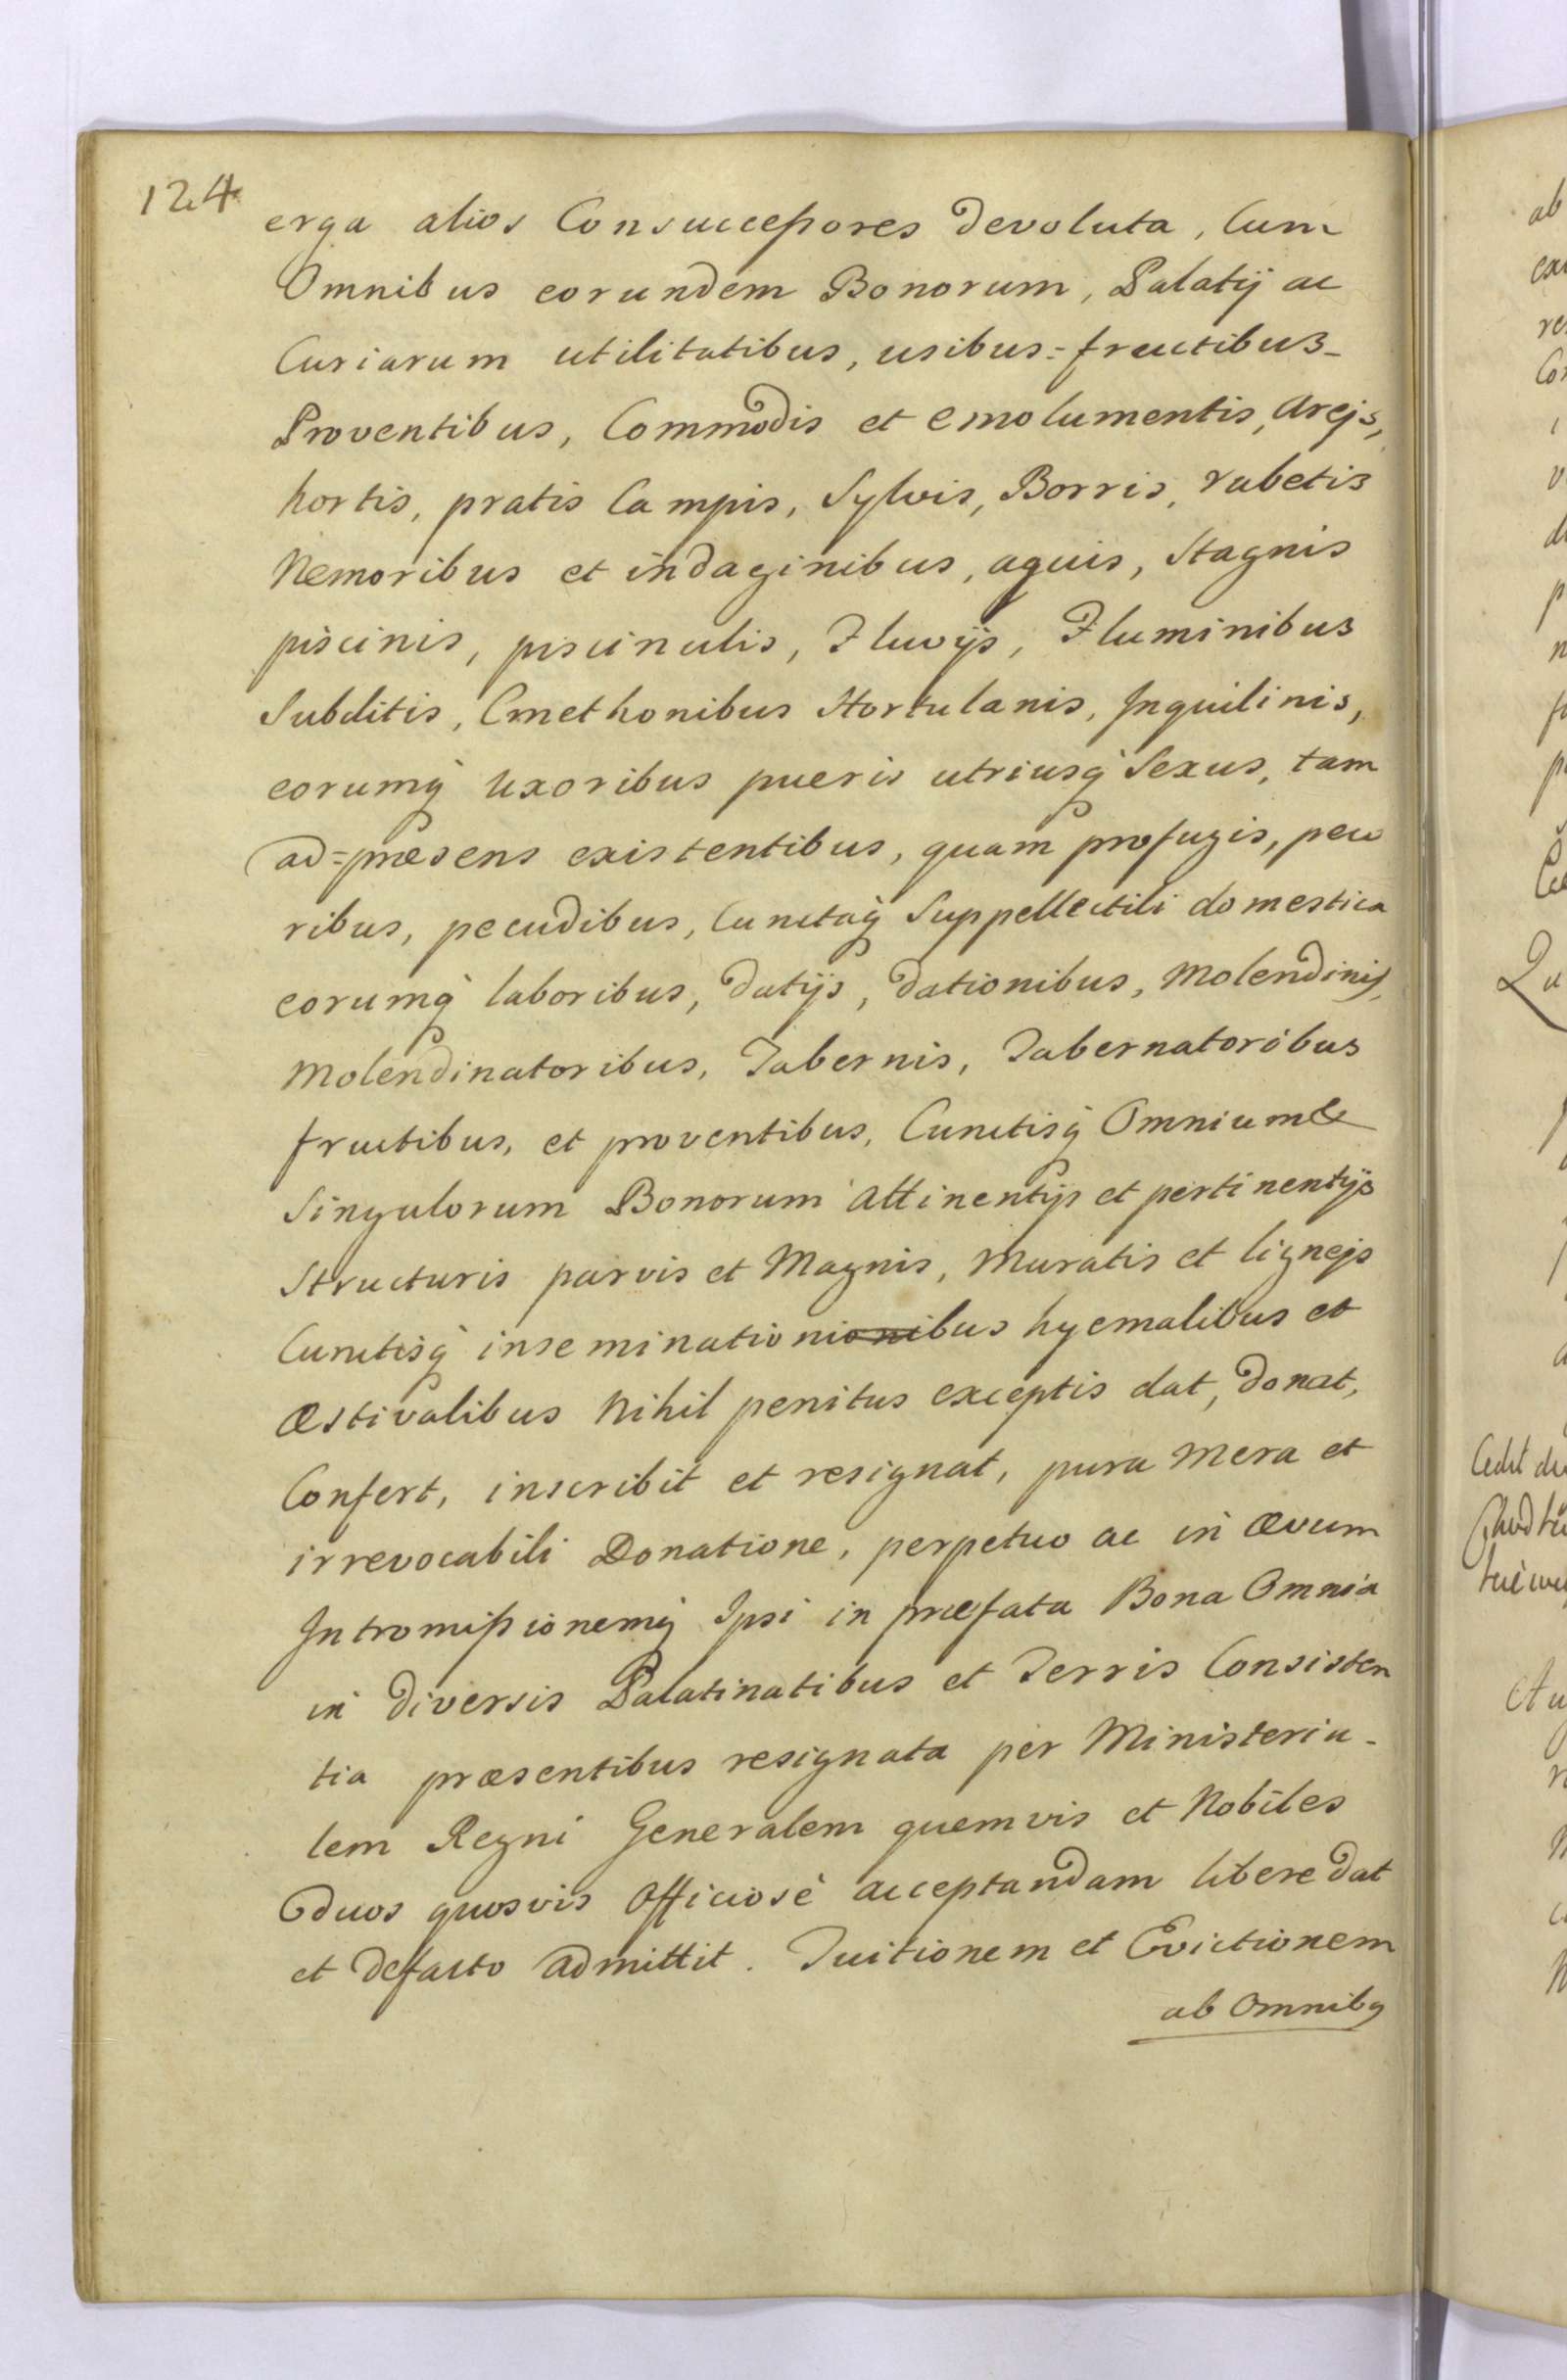 124
erga alios Consuccessores devoluta, Cum
Omnibus eorundem Bonorum, Palatij ac
Curiarum utilitatibus, usibus=fructibus
Proventibus, Commodis et emolumentis, arejs,
hortis, pratis Campis, Sylvis, Borris, rubetis
Nemoribus et indaginibus, aquis, Stagnis
piscinis, piscinulis, Fluvijs, Fluminibus
Subditis, Cmethonibus Hortulanis, Inquilinis,
eorumq uxoribus pueris utriusq Sexus, tam
ad=præsens existentibus, quam profugis, peco
ribus, pecudibus, Cunctaq Suppellectili domestica
eorumq laboribus, datijs, dationibus, Molendinis,
Molendinatoribus, Tabernis, Tabernatoribus
fructibus, et proventibus, Cunctisq Omnium &
Singulorum Bonorum attinentijs et pertinentijs
Structuris parvis et Magnis, Muratis et lignejs
Cunctisq inseminationionibus hyemalibus et
æstivalibus Nihil penitus exceptis dat, donat,
Confert, inscribit et resignat, pura Mera et
irrevocabili Donatione, perpetuo ac in ævum
Intromissionemq Ipsi in præfata Bona Omnia
in diversis Palatinatibus et Terris Consisten
tia præsentibus resignata per Ministeria-
lem Regni Generalem quemvis et Nobiles
duos quosvis Officiosè acceptandam libere dat
et defacto admittit. Tuitionem et Evictionem
ab Omnibq
ab
Qu
Cedit de